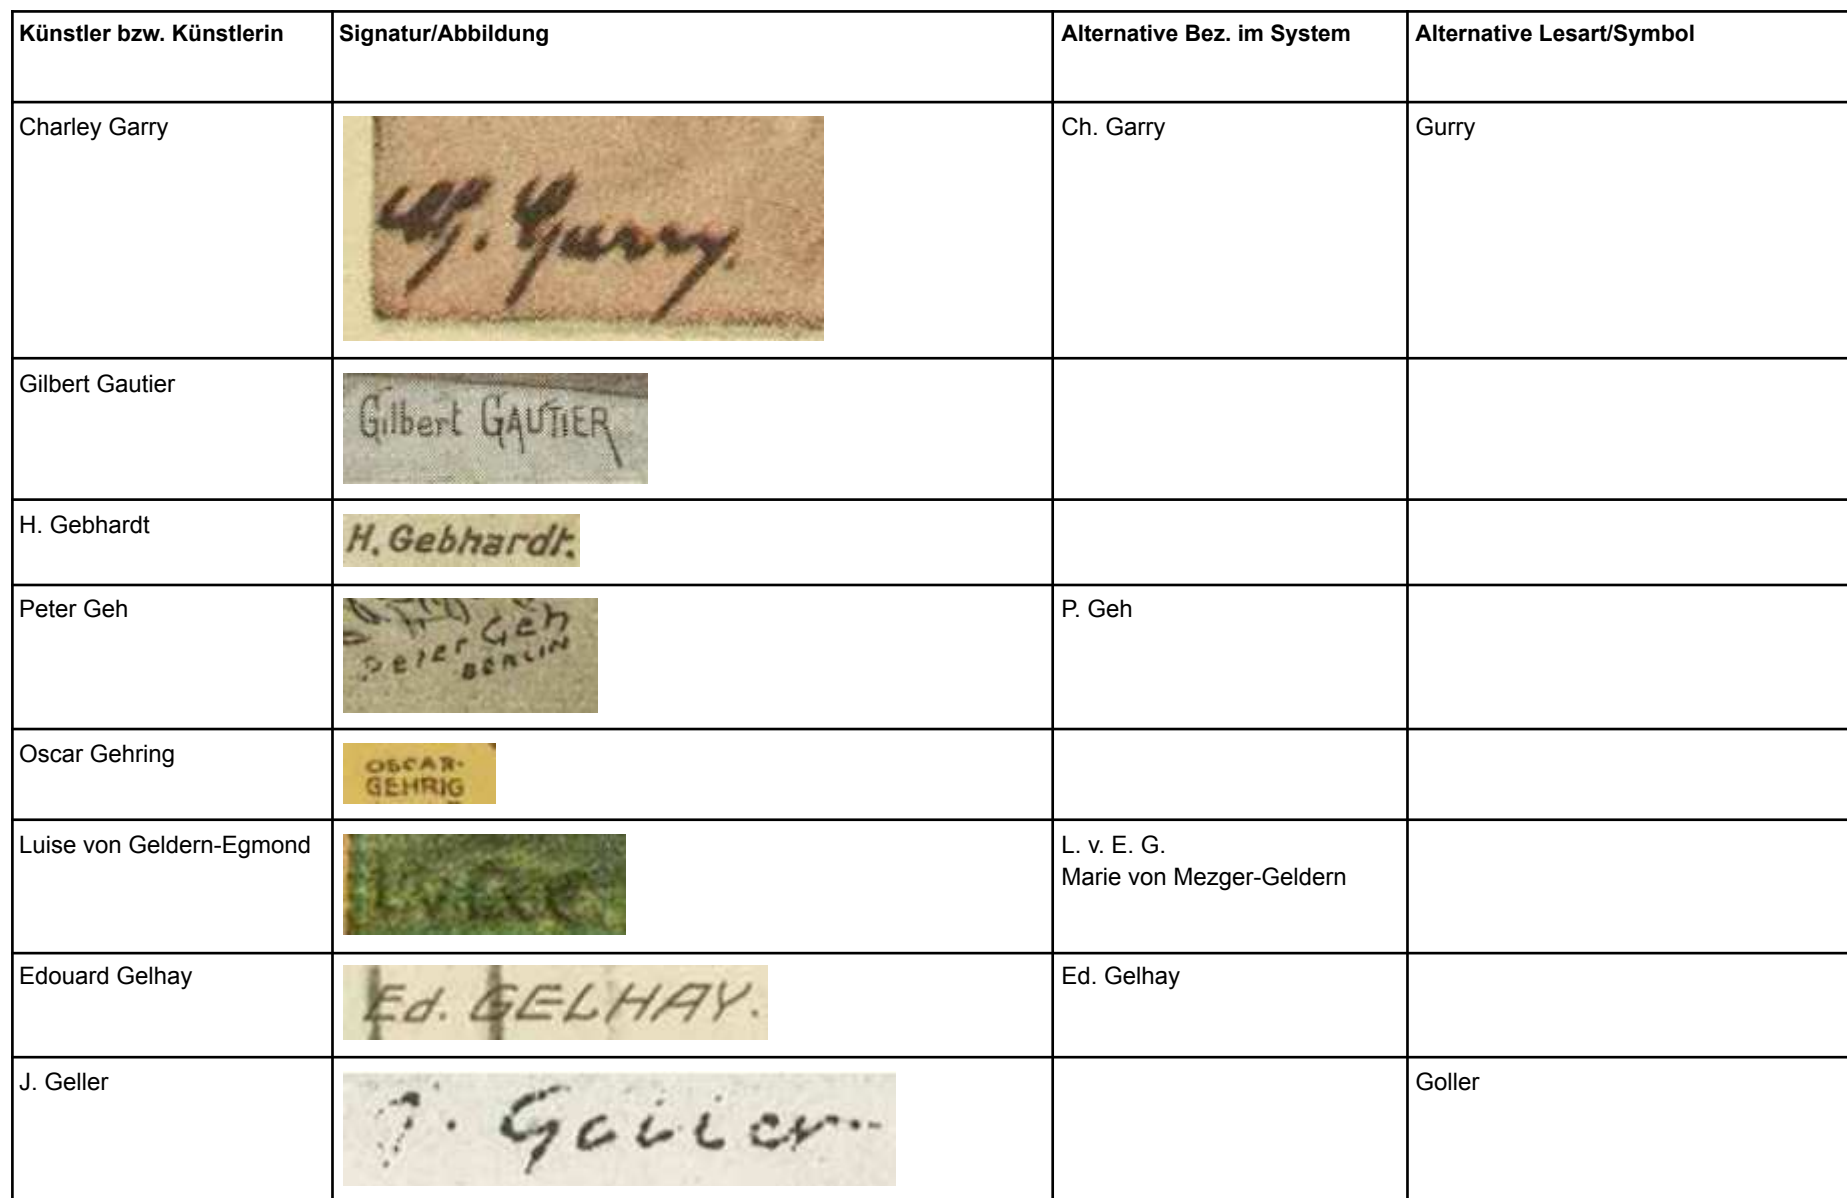 Künstler bzw. Künstlerin Signatur/Abbildung Alternative Bez. im System Alternative Lesart/Symbol
Charley Garry Ch. Garry Gurry
G. Gurry.
Gilbert Gautier
Gilbert GAUTIER
H. Gebhardt
H. Gebhardt.
Peter Geh P. Geh
Peter Geh
BERLIN
Oscar Gehring
OSCAR-
GEHRIG
Luise von Geldern-Egmond L. v. E. G.
Marie von Mezger-Geldern
Edouard Gelhay Ed. Gelhay
Ed. GELHAY.
J. Geller Goller